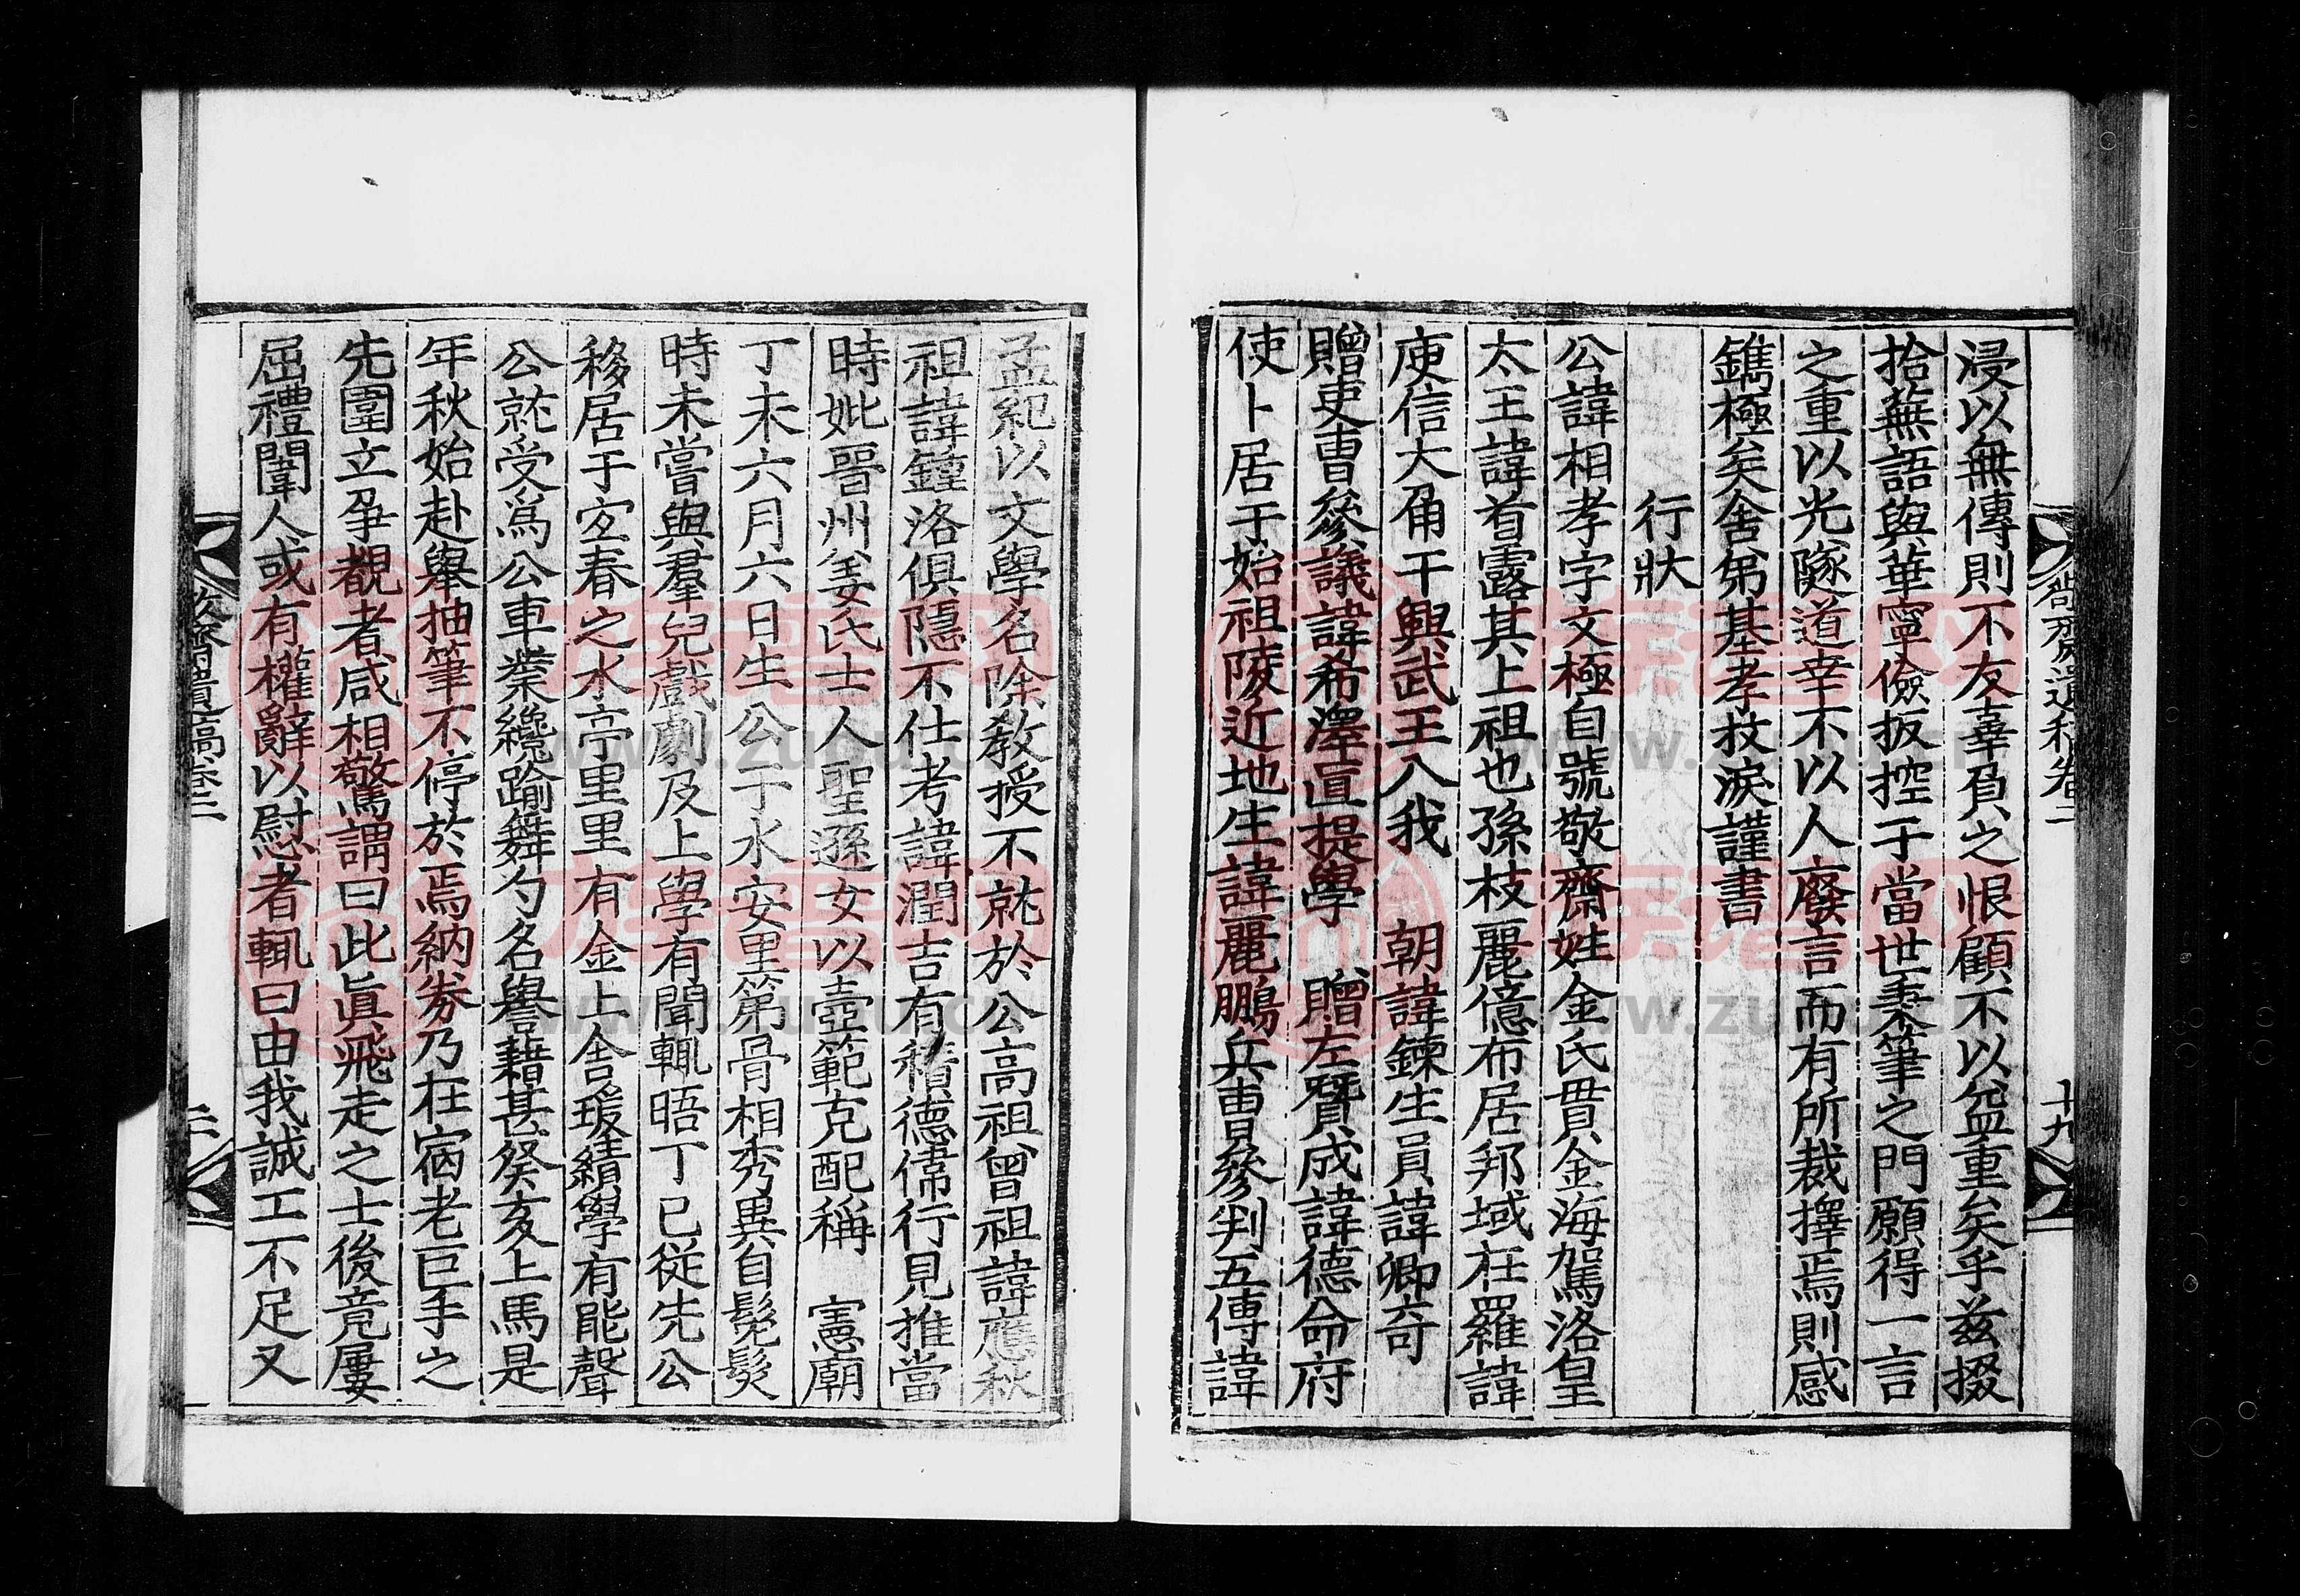 浸以無傳則不友辜負之恨顧不以益重矣乎玆掇
拾蕪語與華寧儉扳控于當世秉筆之門願得一言
之重以光隧道幸不以人廢言而有所裁擇焉則感
鐫極矣舍弟基孝抆淚謹書
行狀
公諱相孝字文極自號敬齋姓金氏貫金海駕洛皇
太王諱首露其上祖也孫枝麗億布居邦域在羅諱
庾信大角干興武王入我 朝諱鍊生員諱卿奇
贈吏曹參議諱希澤直提學 贈左贊成諱德命府
使卜居于始祖陵近地生諱麗鵬兵曹參判五傳諱
敬齋遺稿卷二 十九
孟紀以文學名除教授不就於公高祖曾祖諱應秋
祖諱鍾洛俱隱不仕考諱潤吉有積德偉行見推當
時妣晉州姜氏士人聖遜女以壺範克配稱 憲廟
丁未六月六日生公于水安里第骨相秀異自髧髮
時未嘗與羣兒戲劇及上學有聞輒晤丁巳從先公
移居于宜春之水亭里里有金上舍瑗績學有能聲
公就受爲公車業纔踰舞勺名譽藉甚癸亥上馬是
年秋始赴擧抽筆不停於焉納券乃在宿老巨手之
先圍立爭觀者咸相驚謂曰此眞飛走之士後竟屢
屈禮闈人或有權辭以慰者輒曰由我誠工不足又
敬齋遺稿卷二 二